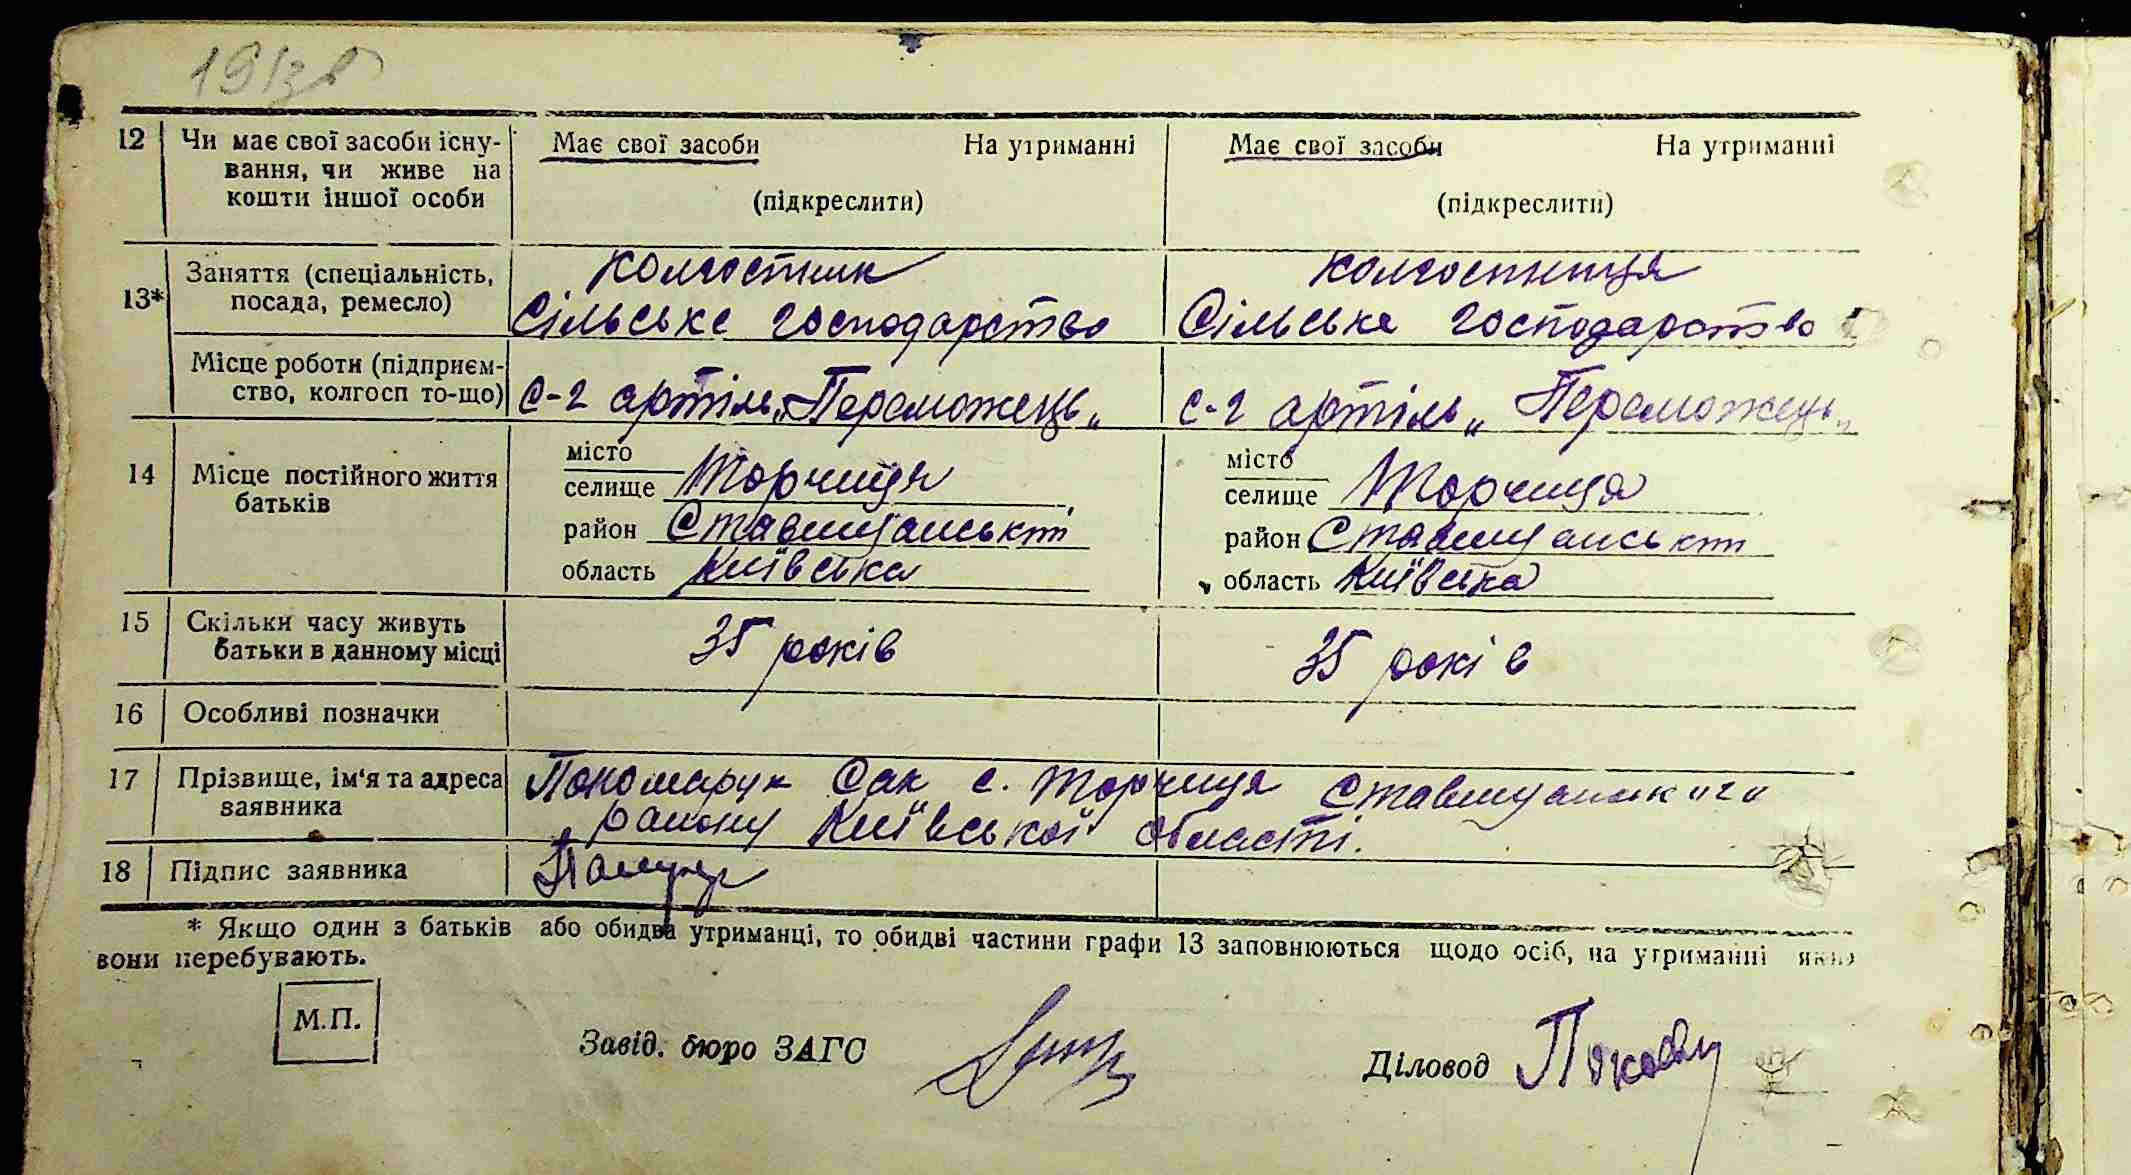 12 Чи має свої засоби існу- Має свої засоби На утриманні Має свої засоби На утриманні
вання, чи живе на
кошти іншої особи (підкреслити) (підкреслити)
13* Заняття (спеціальність, колгостник колгоспниця
посада, ремесло) Сільське господарство Сільське господарство
Місце роботи (підприєм-
ство, колгосп то-що) с-г артіль „Переможець„ с-г артіль „Переможець„
14 Місце постійного життя місто місто
батьків селище Торчиця селище Торчиця
район Ставищанський район Ставищанський
область Київська область Київська
15 Скільки часу живуть 35 років 35 років
батьки в данному місці
16 Особливі позначки
17 Прізвище, ім'я та адреса Пономарук Сак с. Торчиця Ставищанського
заявника району Київської області.
18 Підпис заявника
* Якщо один з батьків або обидва утриманці, то обидві частини графи 13 заповнюються щодо осіб, на утриманні яких
вони перебувають.
М.П.
Завід. бюро ЗАГС Діловод